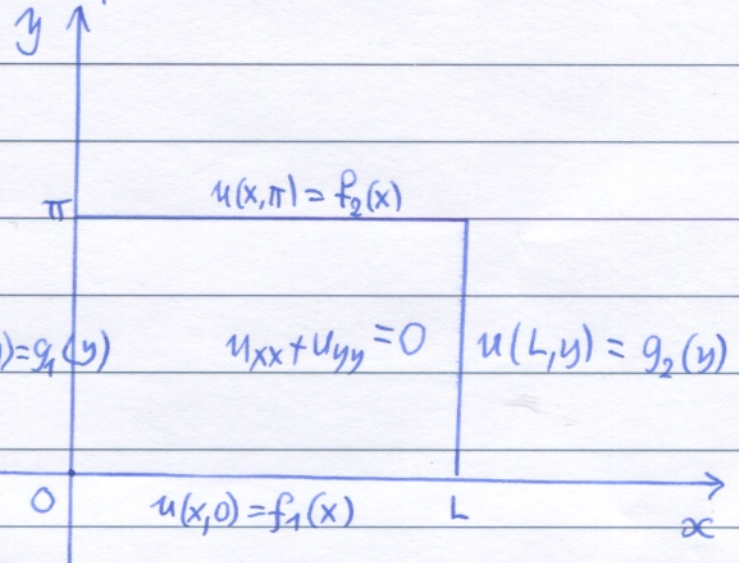 y
π
u(x,π)=f₂(x)
)=g₁(y)
uₓₓ+uᵧᵧ=0
u(L,y)=g₂(y)
O
u(x,0)=f₁(x)
L
x